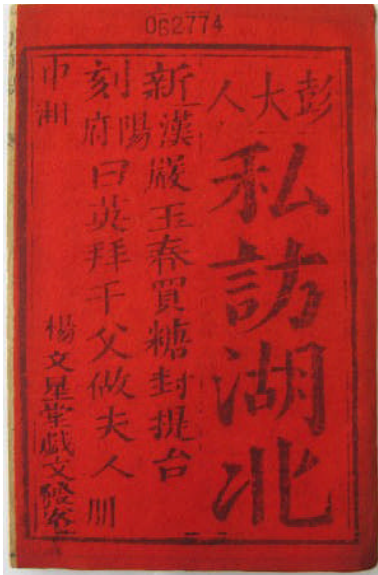 062774
彭大人
私訪湖北
新刻
漢陽府
嚴玉春買糖封提台
曰英拜干父做夫人
湘
楊文星堂戯文發客